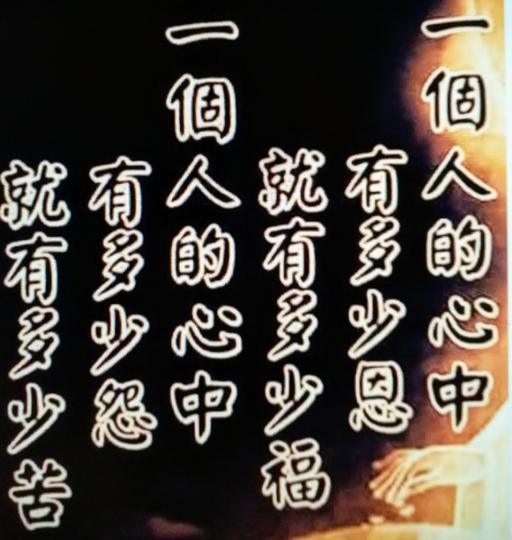 一個人的心中
有多少恩
就有多少福
一個人的心中
有多少怨
就有多少苦